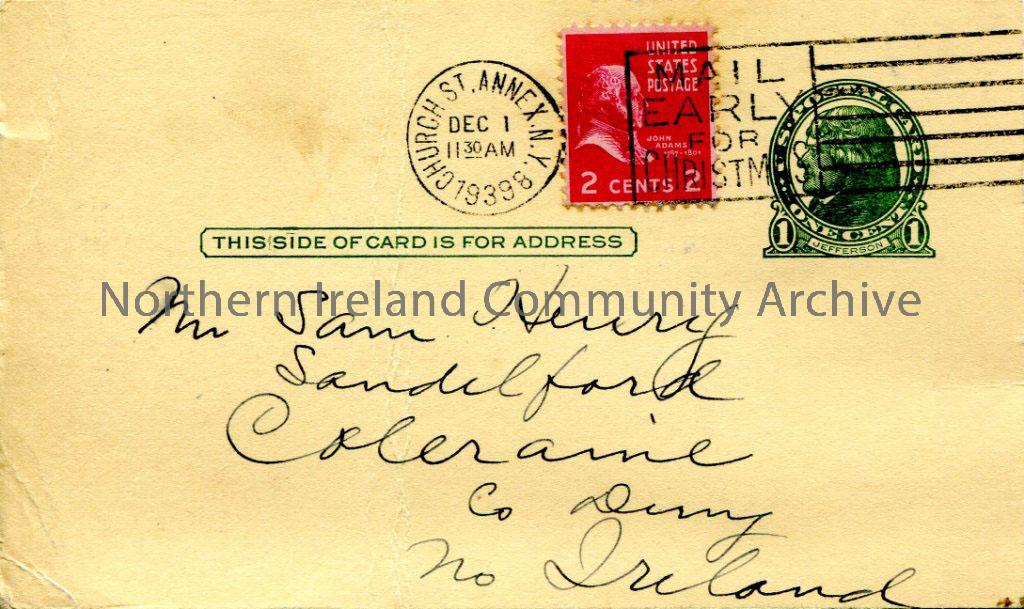 CHURCH ST. ANNEX. N.Y.
DEC 1
11 30 AM
1939
UNITED
STATES
POSTAGE
JOHN
ADAMS
1797-1801
2 CENTS 2
MAIL
EARLY
FOR
CHRISTMAS
1 JEFFERSON 1
ONE CENT
THIS SIDE OF CARD IS FOR ADDRESS
Northern Ireland Community Archive
Mr Sam Henry
Sandelford
Coleraine
Co Derry
No Ireland